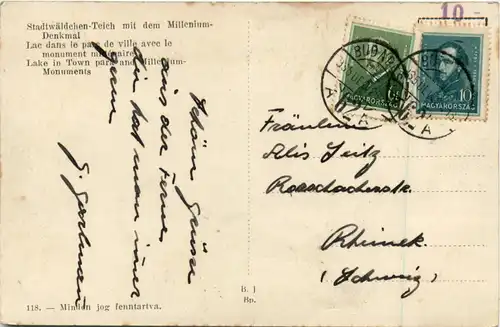 Stadtwäldchen-Teich mit dem Millenium-
Denkmal
Lac dans le parc de ville avec le
monument millénaire
Lake in Town park and Millenium-
Monuments
Schöne Grüsse
aus der Ferne
hat man immer
gern
10
MAGYARORSZÁG
MAGYARORSZÁG
10
Fräulein
Alis Seitz
Rorschacherstr.
Rheinek
(Schweiz)
118. — Minden jog fenntartva.
B. J
Bp.